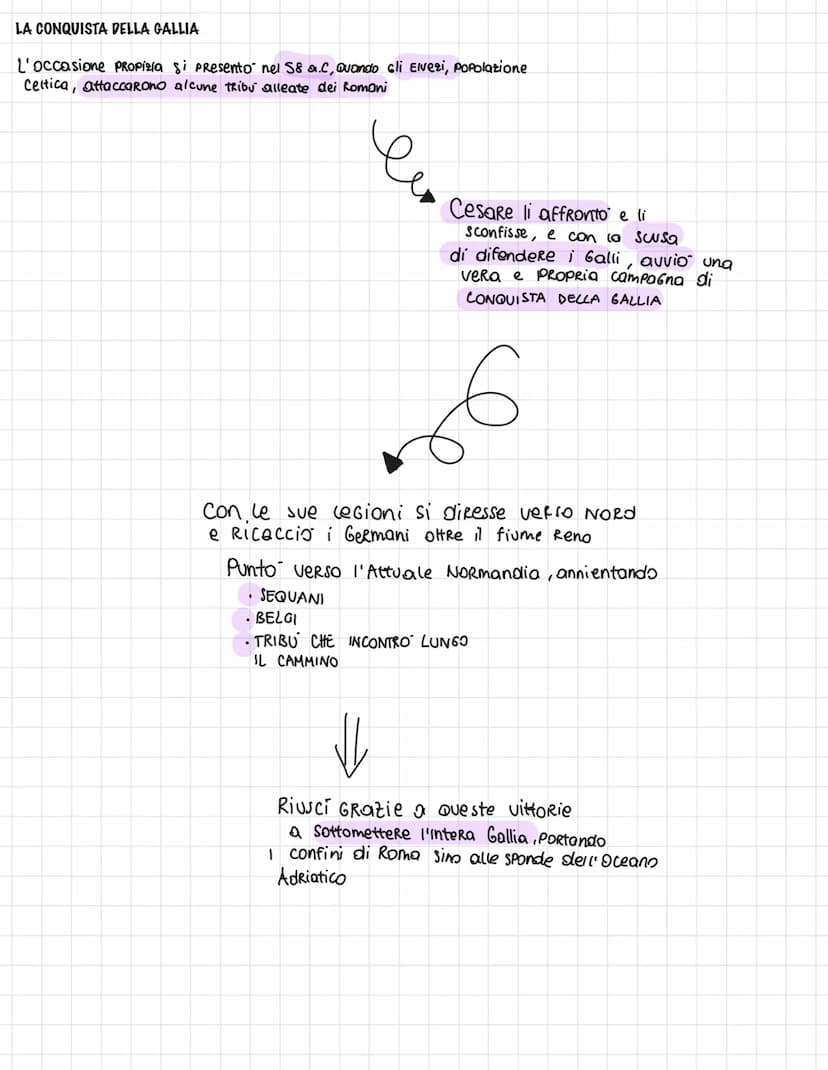 LA CONQUISTA DELLA GALLIA
L'occasione propizia si presentò nel 58 a.C, quando gli Elvezi, popolazione
celtica, attaccarono alcune tribù alleate dei Romani
Cesare li affrontò e li
sconfisse, e con la scusa
di difendere i Galli, avviò una
vera e propria campagna di
CONQUISTA DELLA GALLIA
Con le sue legioni si diresse verso NORD
e ricacciò i Germani oltre il fiume Reno
Puntò verso l'attuale Normandia, annientando
• SEQUANI
• BELGI
• TRIBÙ CHE INCONTRÒ LUNGO
IL CAMMINO
Riuscì grazie a queste vittorie
a sottomettere l'intera Gallia, portando
i confini di Roma sino alle sponde dell'Oceano
Adriatico